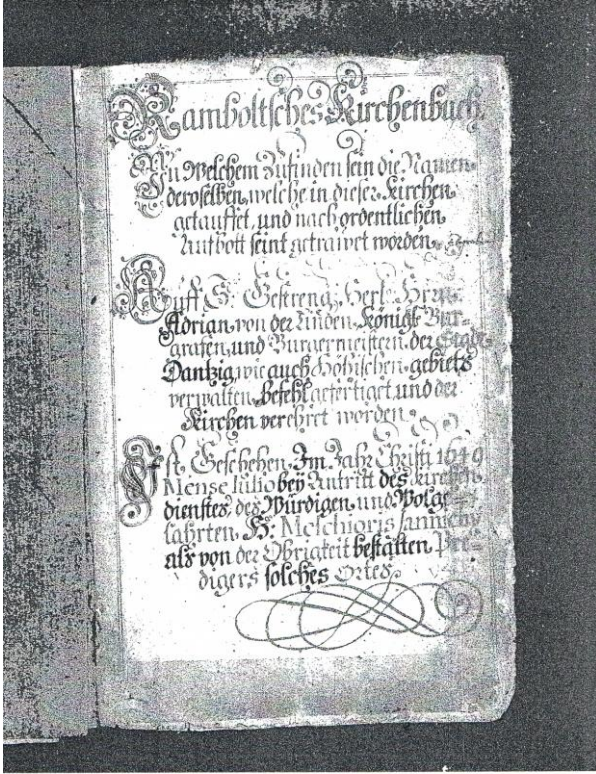 Ramboltsches Kirchenbuch.
In Welchem Zufinden sein die Namen
deroselben, welche in dieser Kirchen
getauffet, und nach ordentlichen
Auffbott seint getrawet worden.
Auff S: Gestreng: Herl: Hrn:
Adrian von der Linden, Königl: Bur-
grafen, und Burgermeistern der Stadt
Dantzig, wie auch Höhischen gebiets
verwalten, befehl gefertiget und der
Kirchen verehret worden.
Ist Geschehen, Im Jahr Christi 1649
Mense Iulio beÿ Antritt des Kirchen
dienstes, des Würdigen, und Wolge-
lahrten H: Melchioris
als von der Obrigkeit bestätten Pre-
digers solches Ortes.